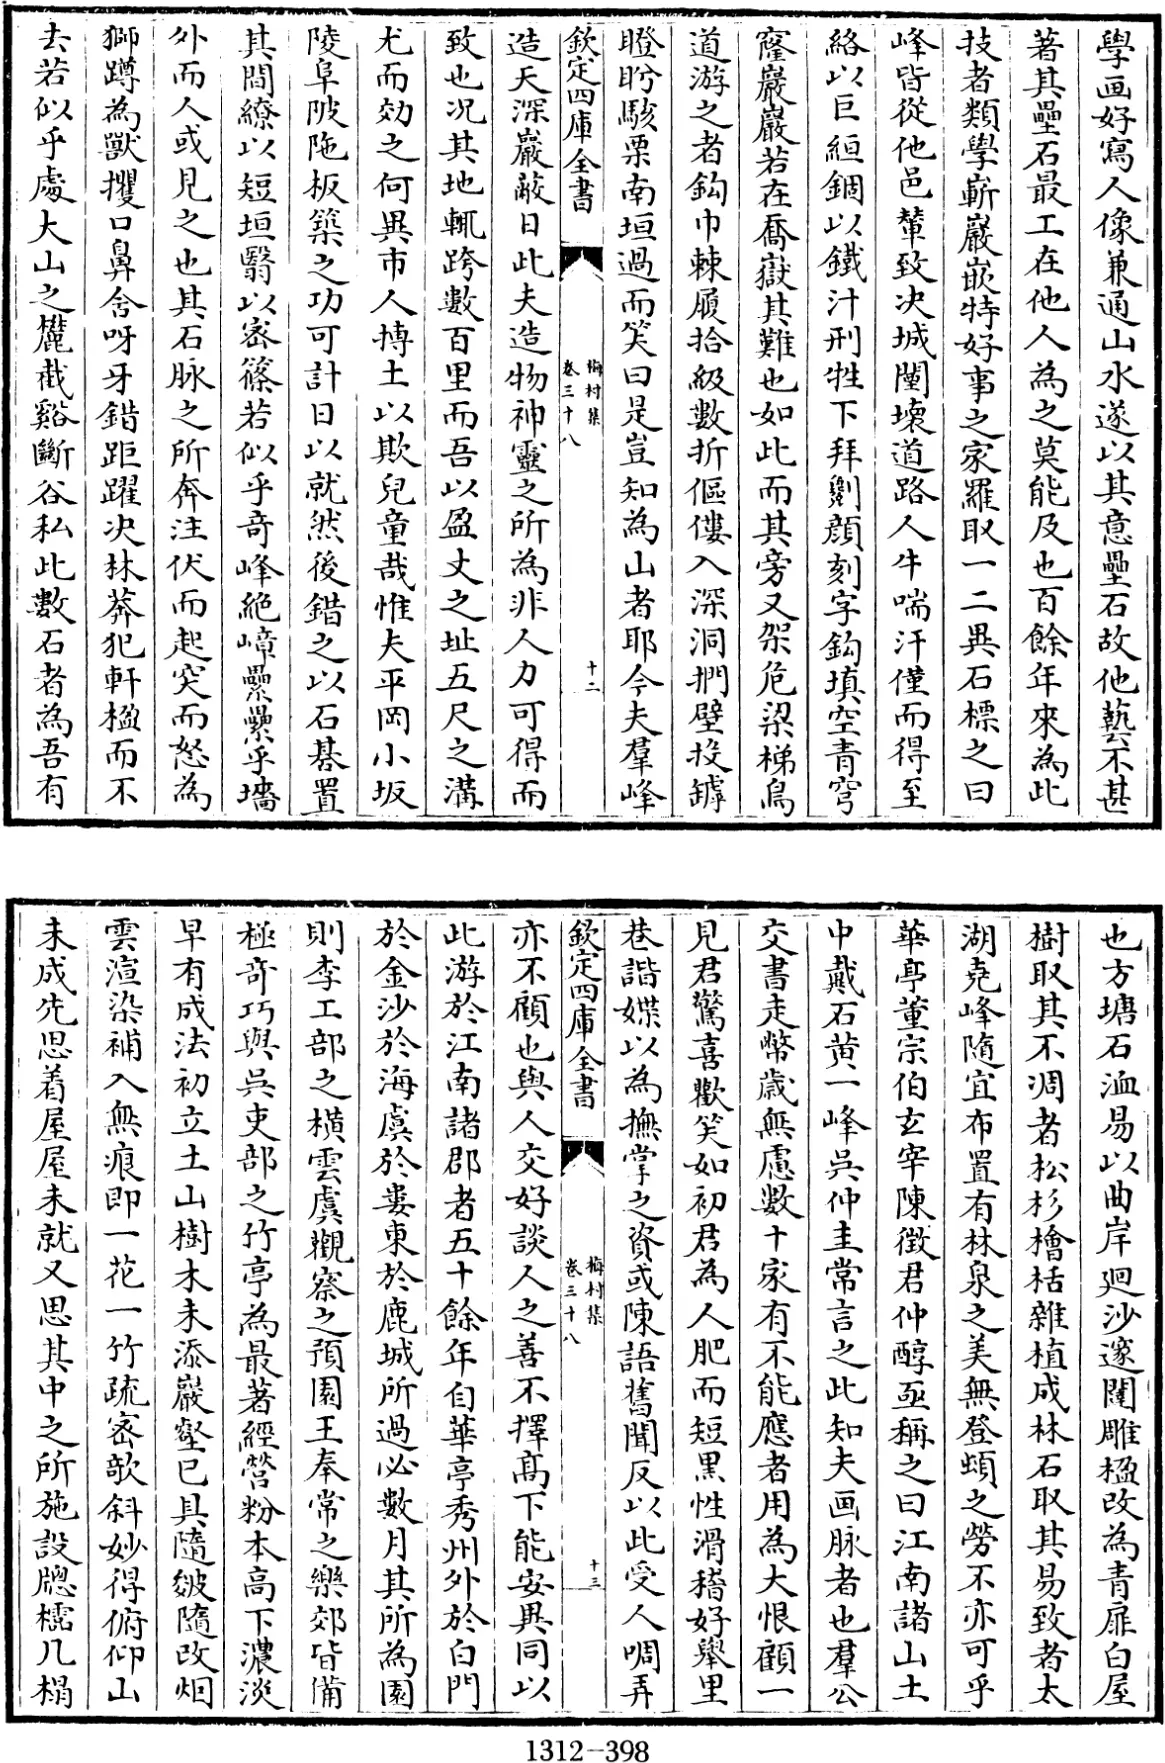 學画好寫人像兼通山水遂以其意壘石故他藝不甚
著其壘石最工在他人為之莫能及也百餘年來為此
技者類學嶄巖嵌特好事之家羅取一二異石標之曰
峰皆從他邑輦致决城闉壞道路人牛喘汗僅而得至
絡以巨絙錮以鐵汁刑牲下拜劖顔刻字鈎填空青穹
窿巖巖若在喬嶽其難也如此而其旁又架危梁梯鳥
道游之者鈎巾棘履拾級數折傴僂入深洞捫壁投罅
瞪盻駭栗南垣過而笑曰是豈知為山者耶今夫羣峰
欽定四庫全書
梅村集
卷三十八
十二
造天深巖蔽日此夫造物神靈之所為非人力可得而
致也况其地輒跨數百里而吾以盈丈之址五尺之溝
尤而效之何異市人摶土以欺兒童哉惟夫平岡小坂
陵阜陂陁板築之功可計日以就然後錯之以石碁置
其間繚以短垣翳以宻篠若似乎竒峰絶嶂纍纍乎墻
外而人或見之也其石脉之所奔注伏而起突而怒為
獅蹲為獸攫口鼻含呀牙錯距躍决林莽犯軒楹而不
去若似乎處大山之麓截谿斷谷私此數石者為吾有
也方塘石洫易以曲岸廻沙邃闥雕楹改為青扉白屋
樹取其不凋者松杉檜栝雜植成林石取其易致者太
湖堯峰隨宜布置有林泉之美無登頓之勞不亦可乎
華亭董宗伯玄宰陳徴君仲醇亟稱之曰江南諸山土
中戴石黄一峰吳仲圭常言之此知夫画脉者也羣公
交書走幣歳無慮數十家有不能應者用為大恨顧一
見君驚喜歡笑如初君為人肥而短黒性滑稽好舉里
巷諧媟以為撫掌之資或陳語舊聞反以此受人啁弄
欽定四庫全書
梅村集
卷三十八
十三
亦不顧也與人交好談人之善不擇髙下能安異同以
此游於江南諸郡者五十餘年自華亭秀州外於白門
於金沙於海虞於婁東於鹿城所過必數月其所為園
則李工部之橫雲虞觀察之預園王奉常之樂郊皆備
極竒巧與吳吏部之竹亭為最著經營粉本高下濃淡
早有成法初立土山樹木未添巖壑已具隨皴隨改烟
雲渲染補入無痕即一花一竹疏宻欹斜妙得俯仰山
未成先思着屋屋未就又思其中之所施設牕櫺几榻
1312-398